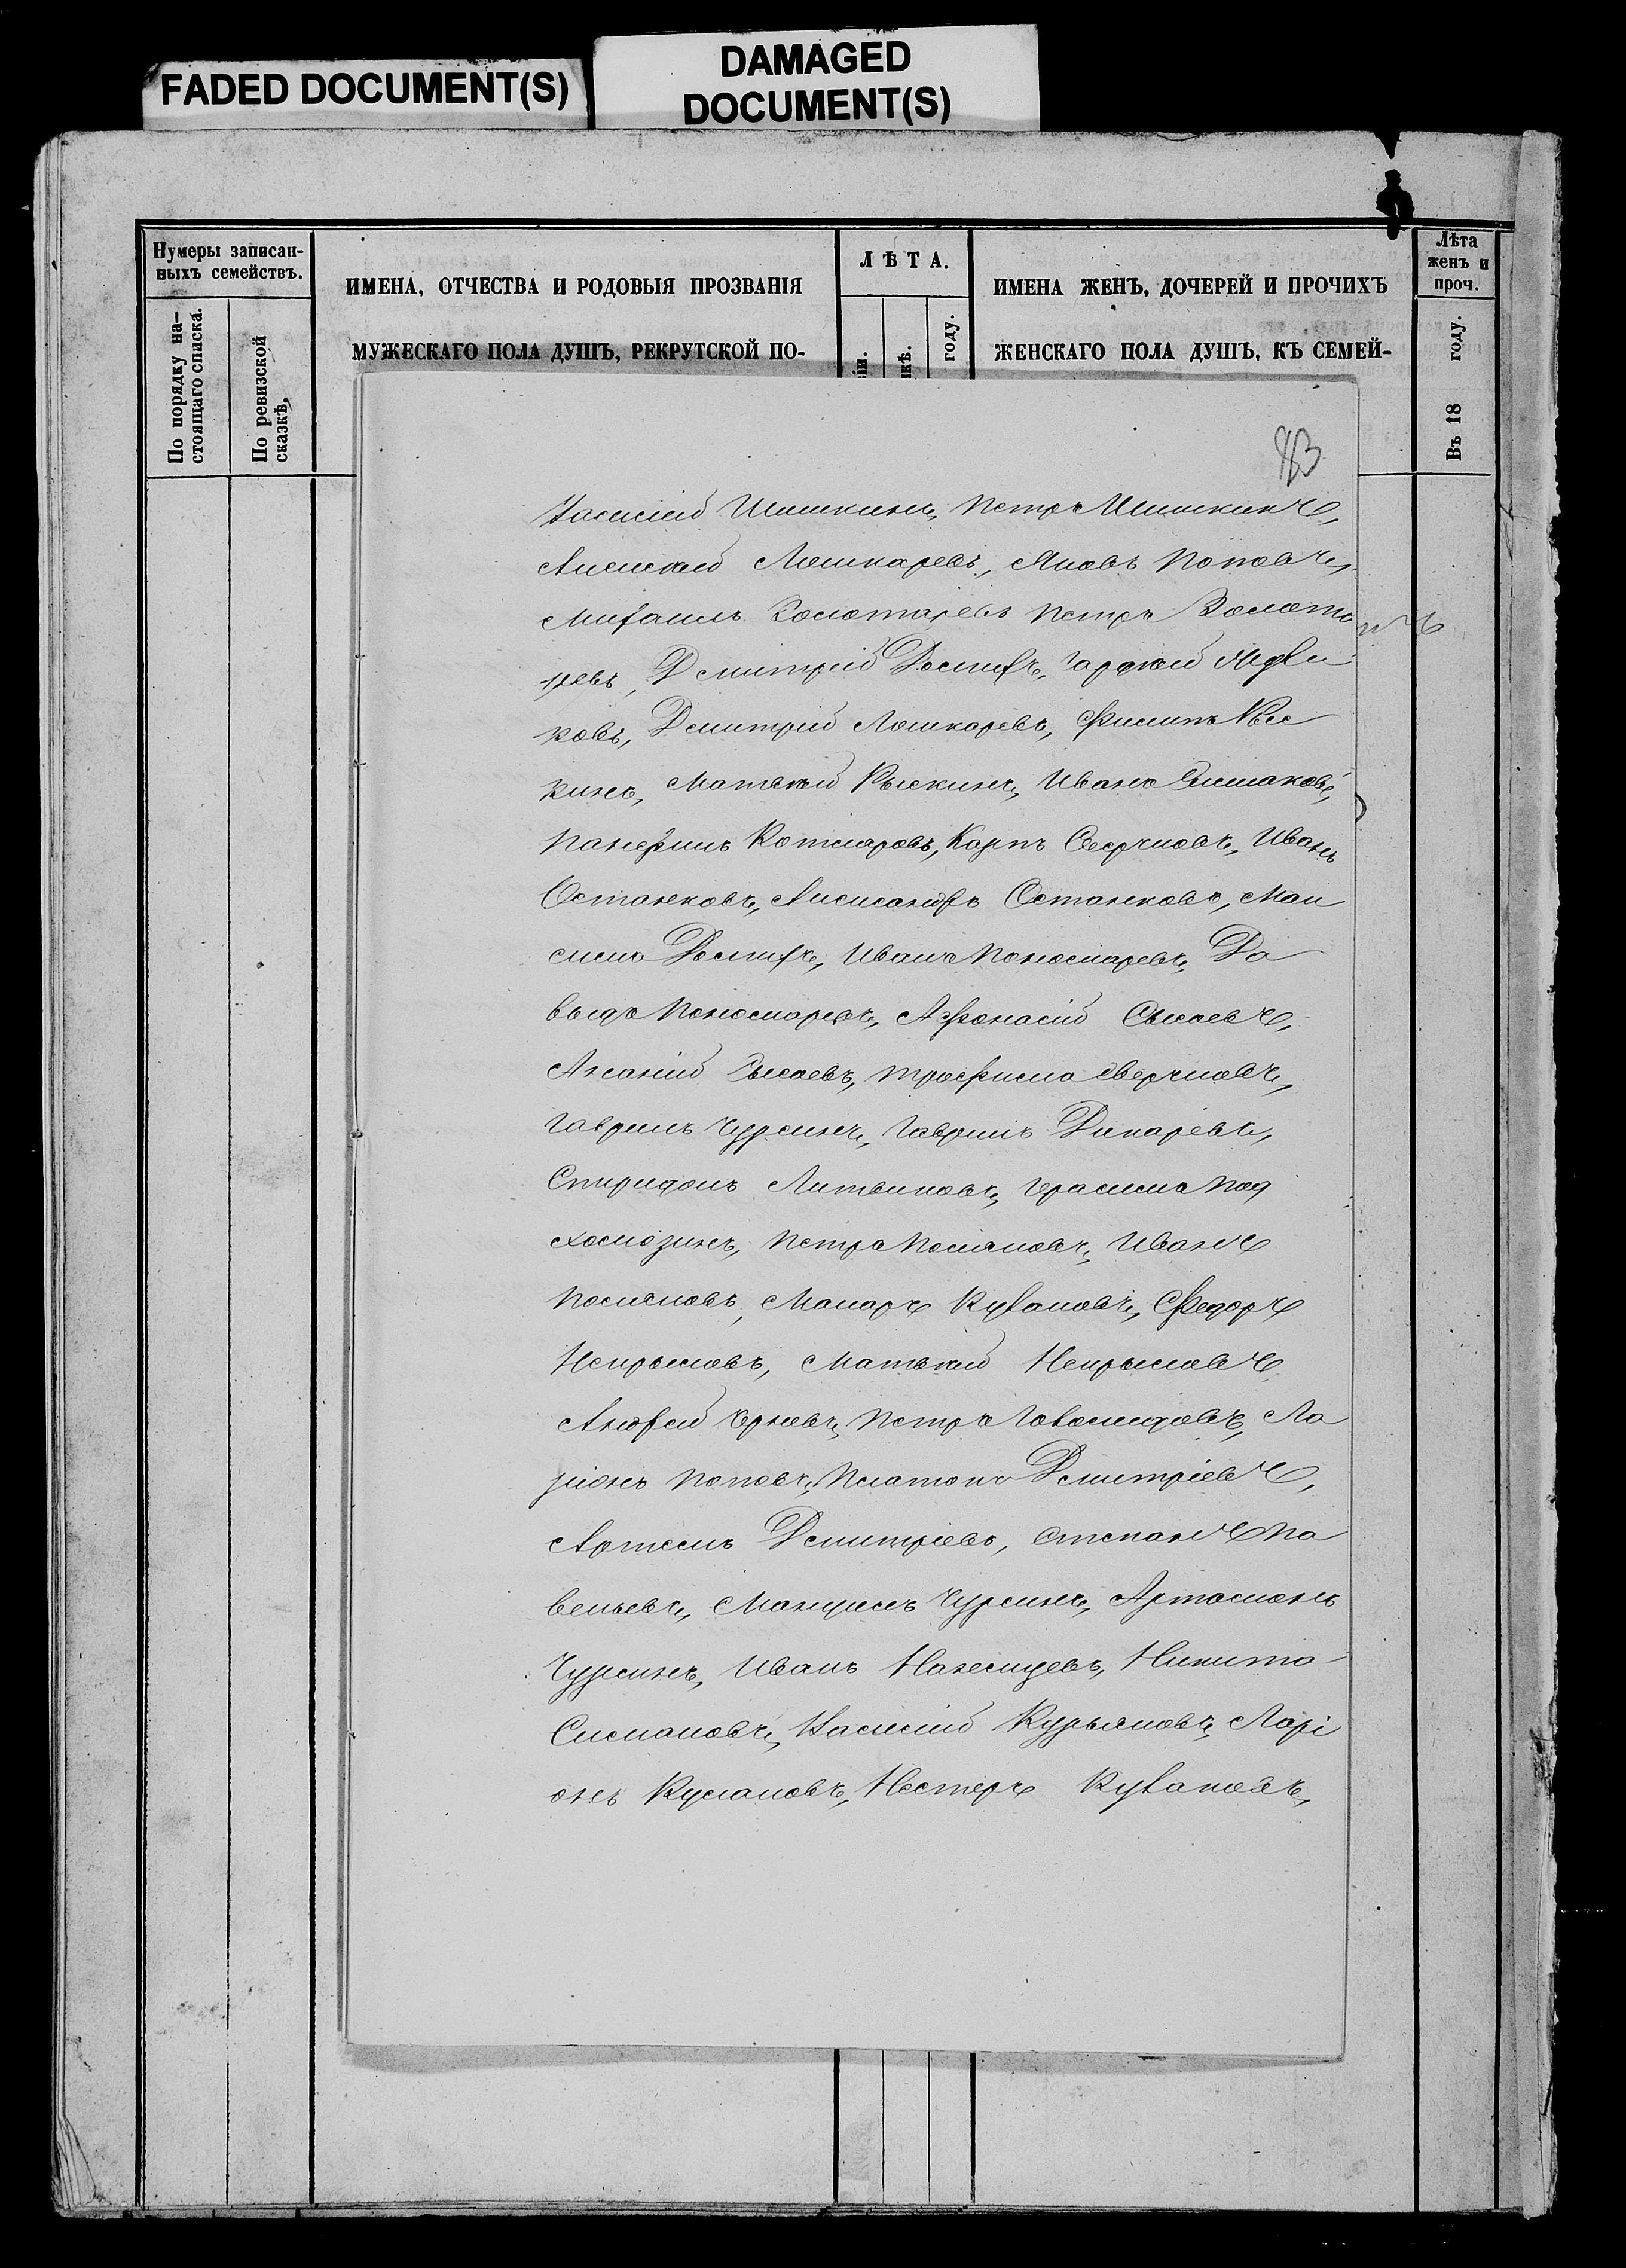 FADED DOCUMENT(S)
DAMAGED
DOCUMENT(S)
Нумеры записан-
ныхъ семействъ.
По порядку на-
стоящаго списка.
По ревизской
сказкѣ.
ИМЕНА, ОТЧЕСТВА И РОДОВЫЯ ПРОЗВАНІЯ
МУЖЕСКАГО ПОЛА ДУШЪ, РЕКРУТСКОЙ ПО-
ЛѢТА.
году.
ИМЕНА ЖЕНЪ, ДОЧЕРЕЙ И ПРОЧИХЪ
ЖЕНСКАГО ПОЛА ДУШЪ, КЪ СЕМЕЙ-
Лѣта
женъ и
проч.
Въ 18 году.
83
Василій Шишкинъ, Петръ Шишкинъ,
Алексѣй Лошкаревъ, Яковъ Поповъ,
Михаилъ Золотаревъ Петръ Золота
ревъ, Дмитрій Долгихъ, Гордѣй
ковъ, Дмитрій Лошкаревъ, Филипъ Рыс
кинъ, Матвѣй Рыскинъ, Иванъ
Панфилъ Котляровъ, Карпъ Сверчковъ, Иванъ
Останковъ, Александръ Останковъ, Мак
симъ Долгихъ, Иванъ Пономаревъ, Да
выдъ Пономаревъ, Афонасій Сысоевъ,
Ананій Сысоевъ, Трофимъ Сверчковъ,
Гаврилъ Чурсинъ, Гаврилъ Дикаревъ,
Спиридонъ Литвиновъ, Герасимъ Под
холюзинъ, Петръ Поляковъ, Иванъ
Поляковъ, Макаръ Рудаковъ, Федоръ
Непрыловъ, Матвѣй Непрыловъ
Андрей Чернёвъ, Петръ Говоленковъ, Ла
ріонъ Поповъ, Платонъ Дмитріевъ,
Артемъ Дмитріевъ, Степанъ Па
вельевъ, Мануилъ Чурсинъ, Артамонъ
Чурсинъ, Иванъ Никита
Симаковъ, Василій Курьяновъ, Ларі
онъ Русановъ, Нестеръ